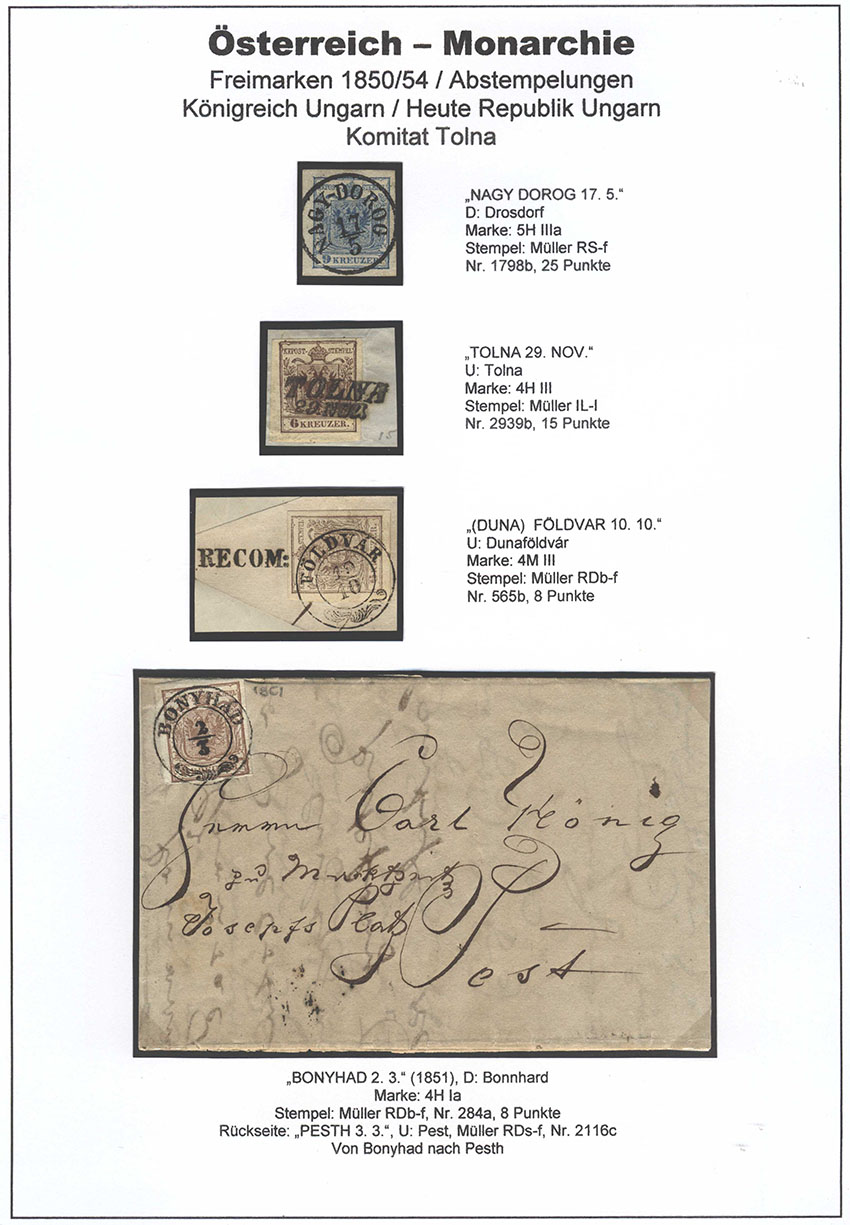 Österreich – Monarchie
Freimarken 1850/54 / Abstempelungen
Königreich Ungarn / Heute Republik Ungarn
Komitat Tolna
NAGY-DOROG
17
5
9 KREUZER
„NAGY DOROG 17. 5.“
D: Drosdorf
Marke: 5H IIIa
Stempel: Müller RS-f
Nr. 1798b, 25 Punkte
KKPOST-STEMPEL
TOLNA
29 NOV.
6 KREUZER.
15
„TOLNA 29. NOV.“
U: Tolna
Marke: 4H III
Stempel: Müller IL-I
Nr. 2939b, 15 Punkte
RECOM:
FÖLDVÁR
10
10
„(DUNA)  FÖLDVAR 10. 10.“
U: Dunaföldvár
Marke: 4M III
Stempel: Müller RDb-f
Nr. 565b, 8 Punkte
BONYHAD
2
3
1851
Carl König
zu
Josepfs Platz
Pest
„BONYHAD 2. 3.“ (1851), D: Bonnhard
Marke: 4H Ia
Stempel: Müller RDb-f, Nr. 284a, 8 Punkte
Rückseite: „PESTH 3. 3.“, U: Pest, Müller RDs-f, Nr. 2116c
Von Bonyhad nach Pesth